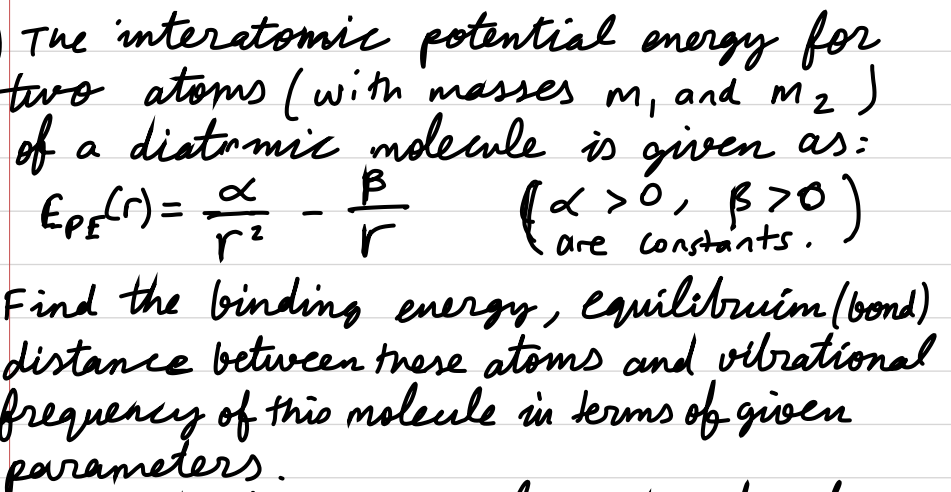 The interatomic potential energy for
two atoms (with masses m₁ and m₂)
of a diatomic molecule is given as:
E_PE(r) = α/r² - β/r (α > 0, β > 0
are constants.)
Find the binding energy, equilibruim (bond)
distance between these atoms and vibrational
frequency of this molecule in terms of given
parameters.